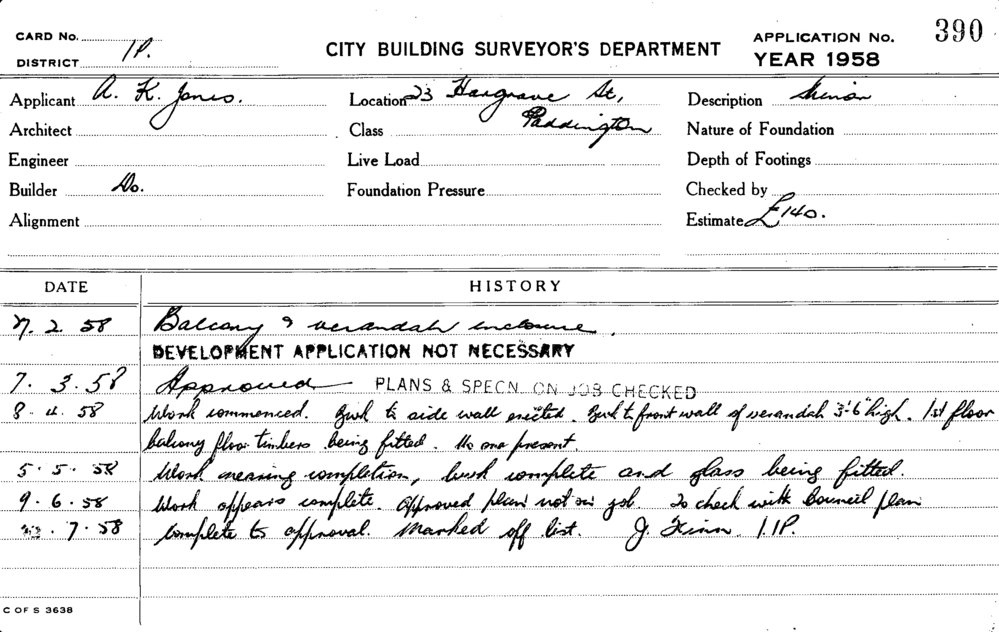 CARD No.
DISTRICT 1P.
CITY BUILDING SURVEYOR'S DEPARTMENT
APPLICATION No. 390
YEAR 1958
Applicant A. K. Jones. Location 23 Hargrave St, Description Minor
Architect Class Paddington Nature of Foundation
Engineer Live Load Depth of Footings
Builder Do. Foundation Pressure Checked by
Alignment Estimate £140.
DATE HISTORY
7. 2. 58 Balcony & verandah enclosure.
DEVELOPMENT APPLICATION NOT NECESSARY
7. 3. 58 Approved PLANS & SPECN. ON JOB CHECKED
8. 4. 58 Work commenced. Bwk to side wall erected. Bwk to front wall of verandah 3'-6" high. 1st floor
balcony floor timbers being fitted. No one present.
5. 5. 58 Work nearing completion, bwk complete and glass being fitted.
9. 6. 58 Work appears complete. Approved plan not on job. To check with Council plan
. 7. 58 Complete to approval. Marked off list. J. Finn 1P.
C OF S 3638